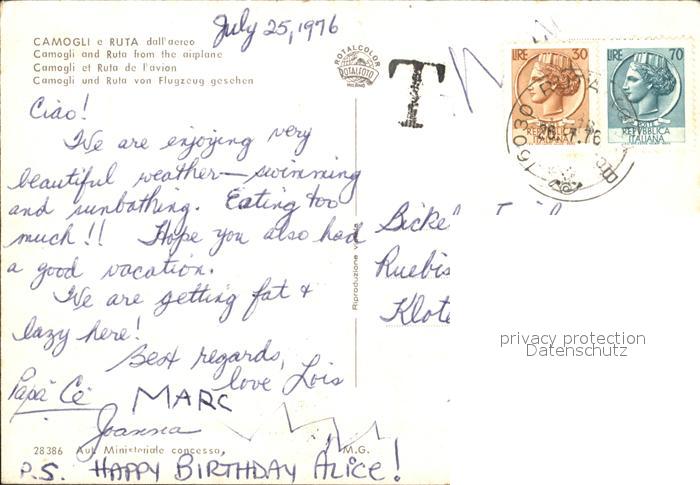 July 25, 1976
CAMOGLI e RUTA dall'aereo
Camogli and Ruta from the airplane
Camogli et Ruta de l'avion
Camogli und Ruta von Flugzeug gesehen
ROTALCOLOR
ROTALFOTO
MILANO
T
LIRE 30
POSTE
REPVBBLICA
ITALIANA
LIRE 70
POSTE
REPVBBLICA
ITALIANA
16030
26.7.76
Ciao!
We are enjoying very
beautiful weather—swimming
and sunbathing. Eating too
much!! Hope you also had
a good vacation.
We are getting fat +
lazy here!
Best regards,
love Lois
Papà Cè
MARC
Joanna
Bickel
Ruebis
Klote
Riproduzione
privacy protection
Datenschutz
28386 Aut. Ministeriale concessa, M.G.
P.S. HAPPY BIRTHDAY ALICE!